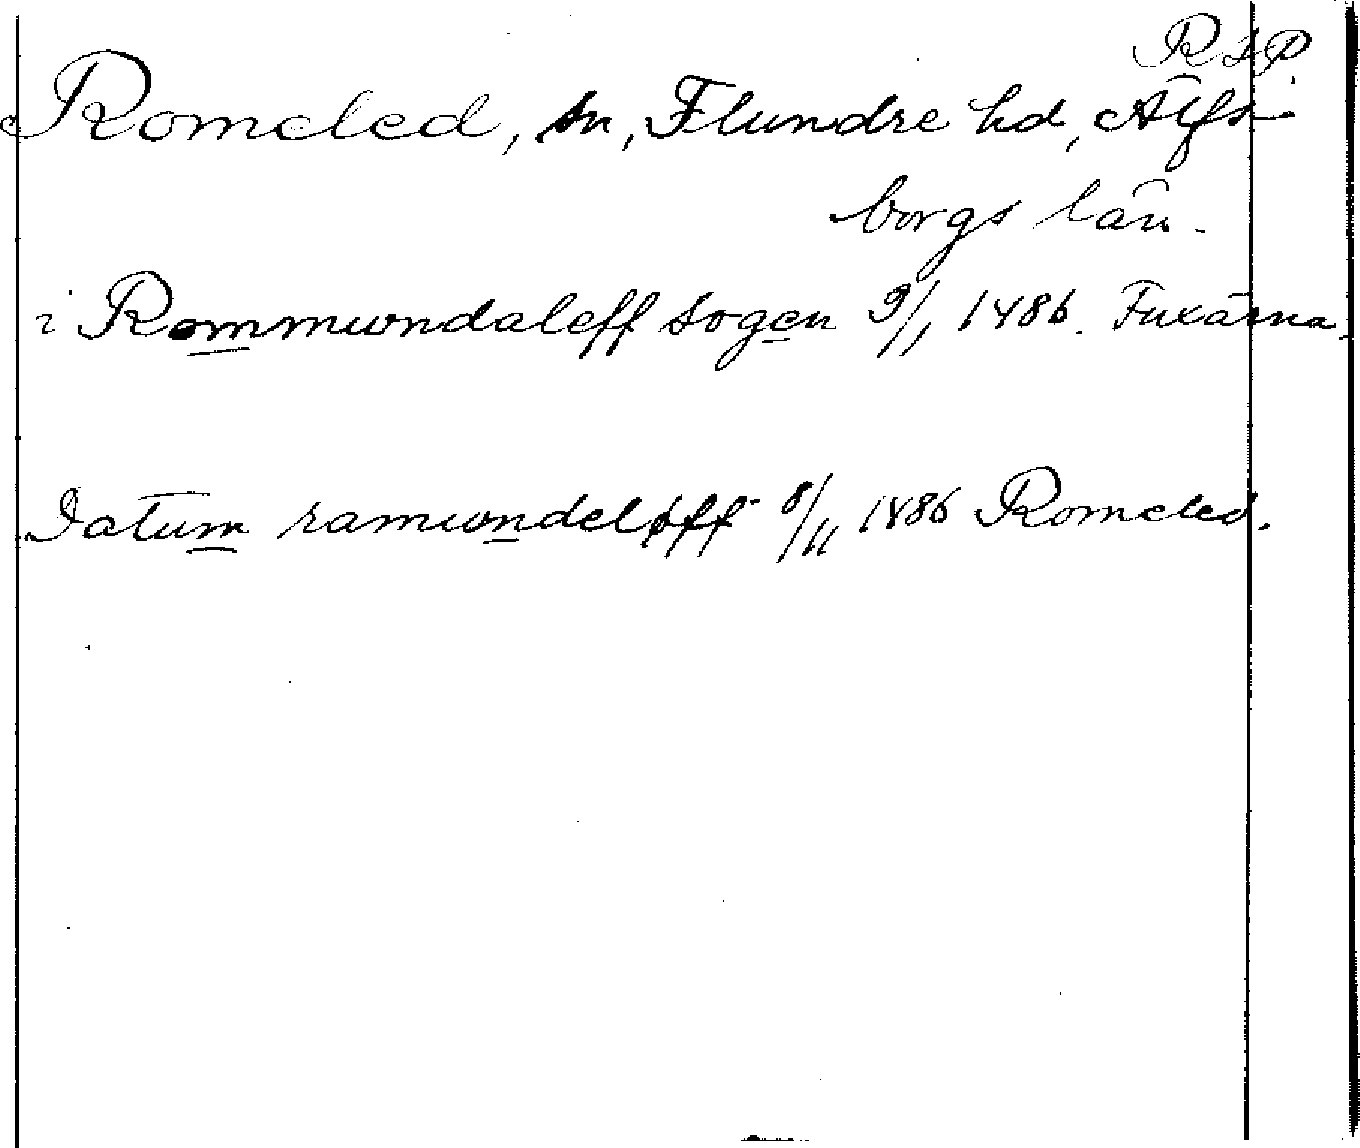 RSP
Romeled, sn, Flundre hd, Älfs-
borgs län.
i Rommwndaleff sogen 9/1 1486. Fuxärna.
Datum ramwndeleff 8/11 1486 Romeled.